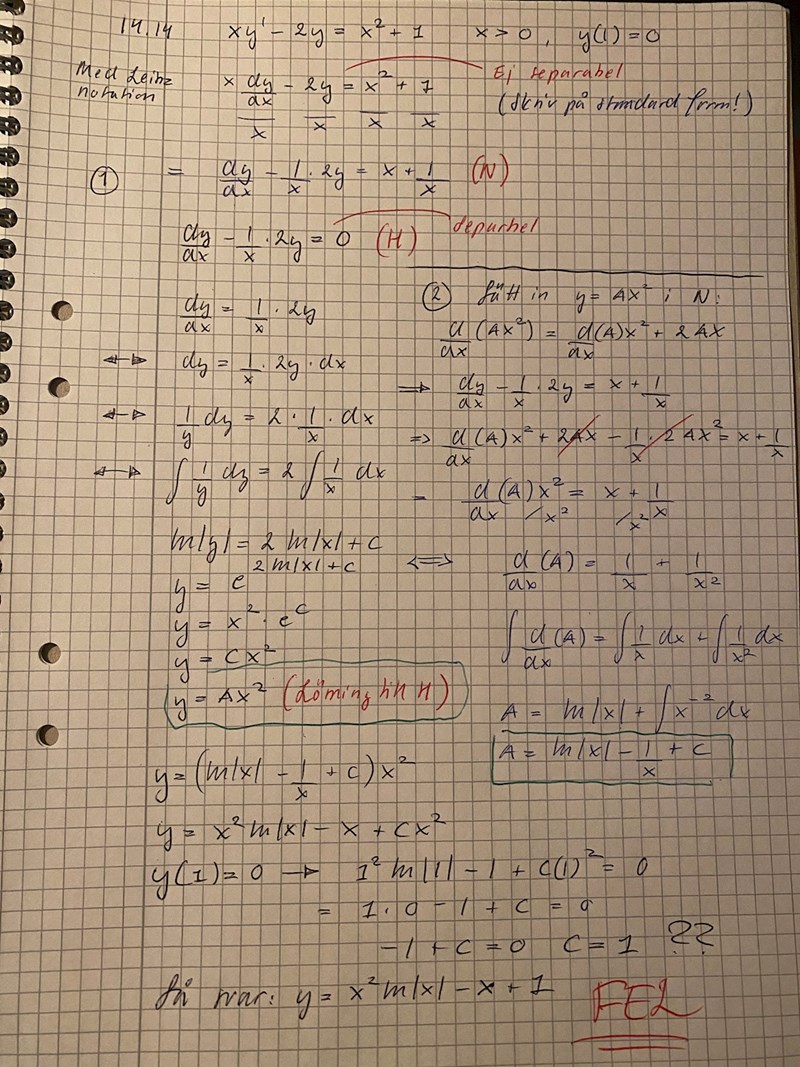 14.14 xy' - 2y = x² + 1 x > 0, y(1) = 0
Med Leibz notation x dy/dx - 2y = x² + 1 Ej separabel
/x /x /x /x (Skriv på standard form!)
① = dy/dx - 1/x · 2y = x + 1/x (N)
dy/dx - 1/x · 2y = 0 (H) separbel
dy/dx = 1/x · 2y
↔ dy = 1/x · 2y · dx
↔ 1/y dy = 2 · 1/x · dx
↔ ∫ 1/y dy = 2 ∫ 1/x dx
ln|y| = 2 ln|x| + c
y = e^(2 ln|x| + c)
y = x² · e^c
y = Cx²
y = Ax² (Lösning till H)
② Sätt in y = Ax² i N:
d/dx (Ax²) = d/dx (A)x² + 2Ax
⇒ dy/dx - 1/x · 2y = x + 1/x
⇒ d/dx (A)x² + 2Ax - 1/x · 2Ax² = x + 1/x
= d/dx (A)x² = x + 1/x
/x² /x²
⇔ d/dx (A) = 1/x + 1/x²
∫ d/dx (A) = ∫ 1/x dx + ∫ 1/x² dx
A = ln|x| + ∫ x⁻² dx
A = ln|x| - 1/x + c
y = (ln|x| - 1/x + c) x²
y = x² ln|x| - x + cx²
y(1) = 0 → 1² ln|1| - 1 + c(1)² = 0
= 1 · 0 - 1 + c = 0
-1 + c = 0 c = 1 ??
Så svar: y = x² ln|x| - x + 1 FEL